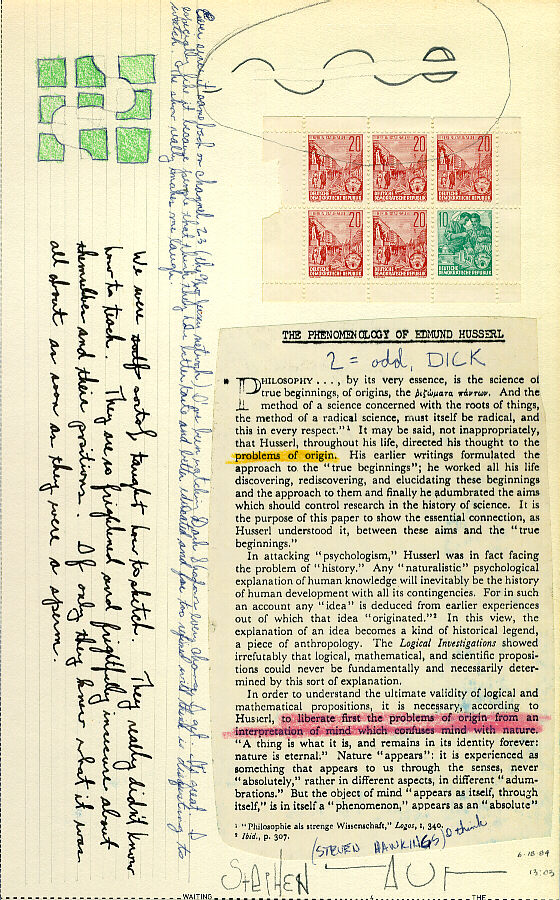 Ever since it came back on channel 23 I've been watching Dark Shadows every chance I get. It's great. I
especially like it because people that think they're better and better educated and far too refined will think it disgusting to
watch. The show really makes me laugh.
We were sort of taught how to sketch. They really didn't know
how to teach. They are so frightened and frightfully insecure about
themselves and their positions. If only they knew what it was
all about as soon as they were a sperm.
20 20 20
DEUTSCHE DEMOKRATISCHE REPUBLIK DEUTSCHE DEMOKRATISCHE REPUBLIK DEUTSCHE DEMOKRATISCHE REPUBLIK
20 20 10
DEUTSCHE DEMOKRATISCHE REPUBLIK DEUTSCHE DEMOKRATISCHE REPUBLIK DEUTSCHE DEMOKRATISCHE REPUBLIK
THE PHENOMENOLOGY OF EDMUND HUSSERL
2 = odd, DICK
* PHILOSOPHY ..., by its very essence, is the science of
true beginnings, of origins, the ῥιζώματα πάντων. And the
method of a science concerned with the roots of things,
the method of a radical science, must itself be radical, and
this in every respect."¹ It may be said, not inappropriately,
that Husserl, throughout his life, directed his thought to the
problems of origin. His earlier writings formulated the
approach to the "true beginnings"; he worked all his life
discovering, rediscovering, and elucidating these beginnings
and the approach to them and finally he adumbrated the aims
which should control research in the history of science. It is
the purpose of this paper to show the essential connection, as
Husserl understood it, between these aims and the "true
beginnings."
In attacking "psychologism," Husserl was in fact facing
the problem of "history." Any "naturalistic" psychological
explanation of human knowledge will inevitably be the history
of human development with all its contingencies. For in such
an account any "idea" is deduced from earlier experiences
out of which that idea "originated."² In this view, the
explanation of an idea becomes a kind of historical legend,
a piece of anthropology. The Logical Investigations showed
irrefutably that logical, mathematical, and scientific proposi-
tions could never be fundamentally and necessarily deter-
mined by this sort of explanation.
In order to understand the ultimate validity of logical and
mathematical propositions, it is necessary, according to
Husserl, to liberate first the problems of origin from an
interpretation of mind which confuses mind with nature.
"A thing is what it is, and remains in its identity forever:
nature is eternal." Nature "appears": it is experienced as
something that appears to us through the senses, never
"absolutely," rather in different aspects, in different "adum-
brations." But the object of mind "appears as itself, through
itself," is in itself a "phenomenon," appears as an "absolute"
¹ "Philosophie als strenge Wissenschaft," Logos, 1, 340.
² Ibid., p. 307.
(STEVEN HAWKINGS) I think
STEPHEN
6-18-89
13:03
WAITING THE